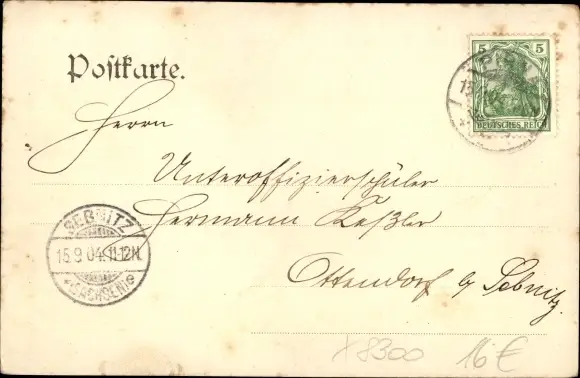 Postkarte.
5 5
DEUTSCHES REICH
Herrn
Unteroffizierschüler
Hermann Keßler
Ottendorf b/ Sebnitz.
SEBNITZ
15.9.04.11-12N.
*(SACHSEN)e
x8300 16 €